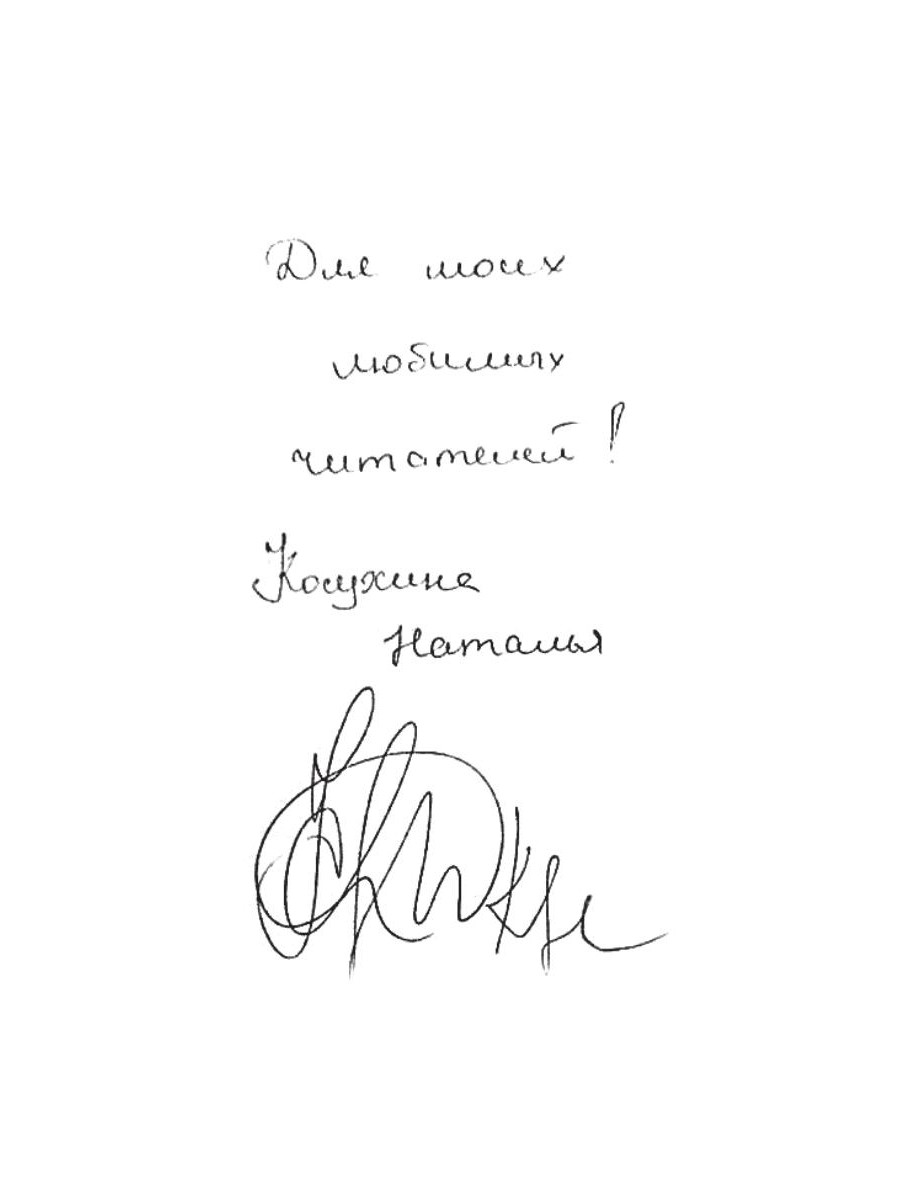 Для моих
любимых
читателей!
Колухина
Наталья